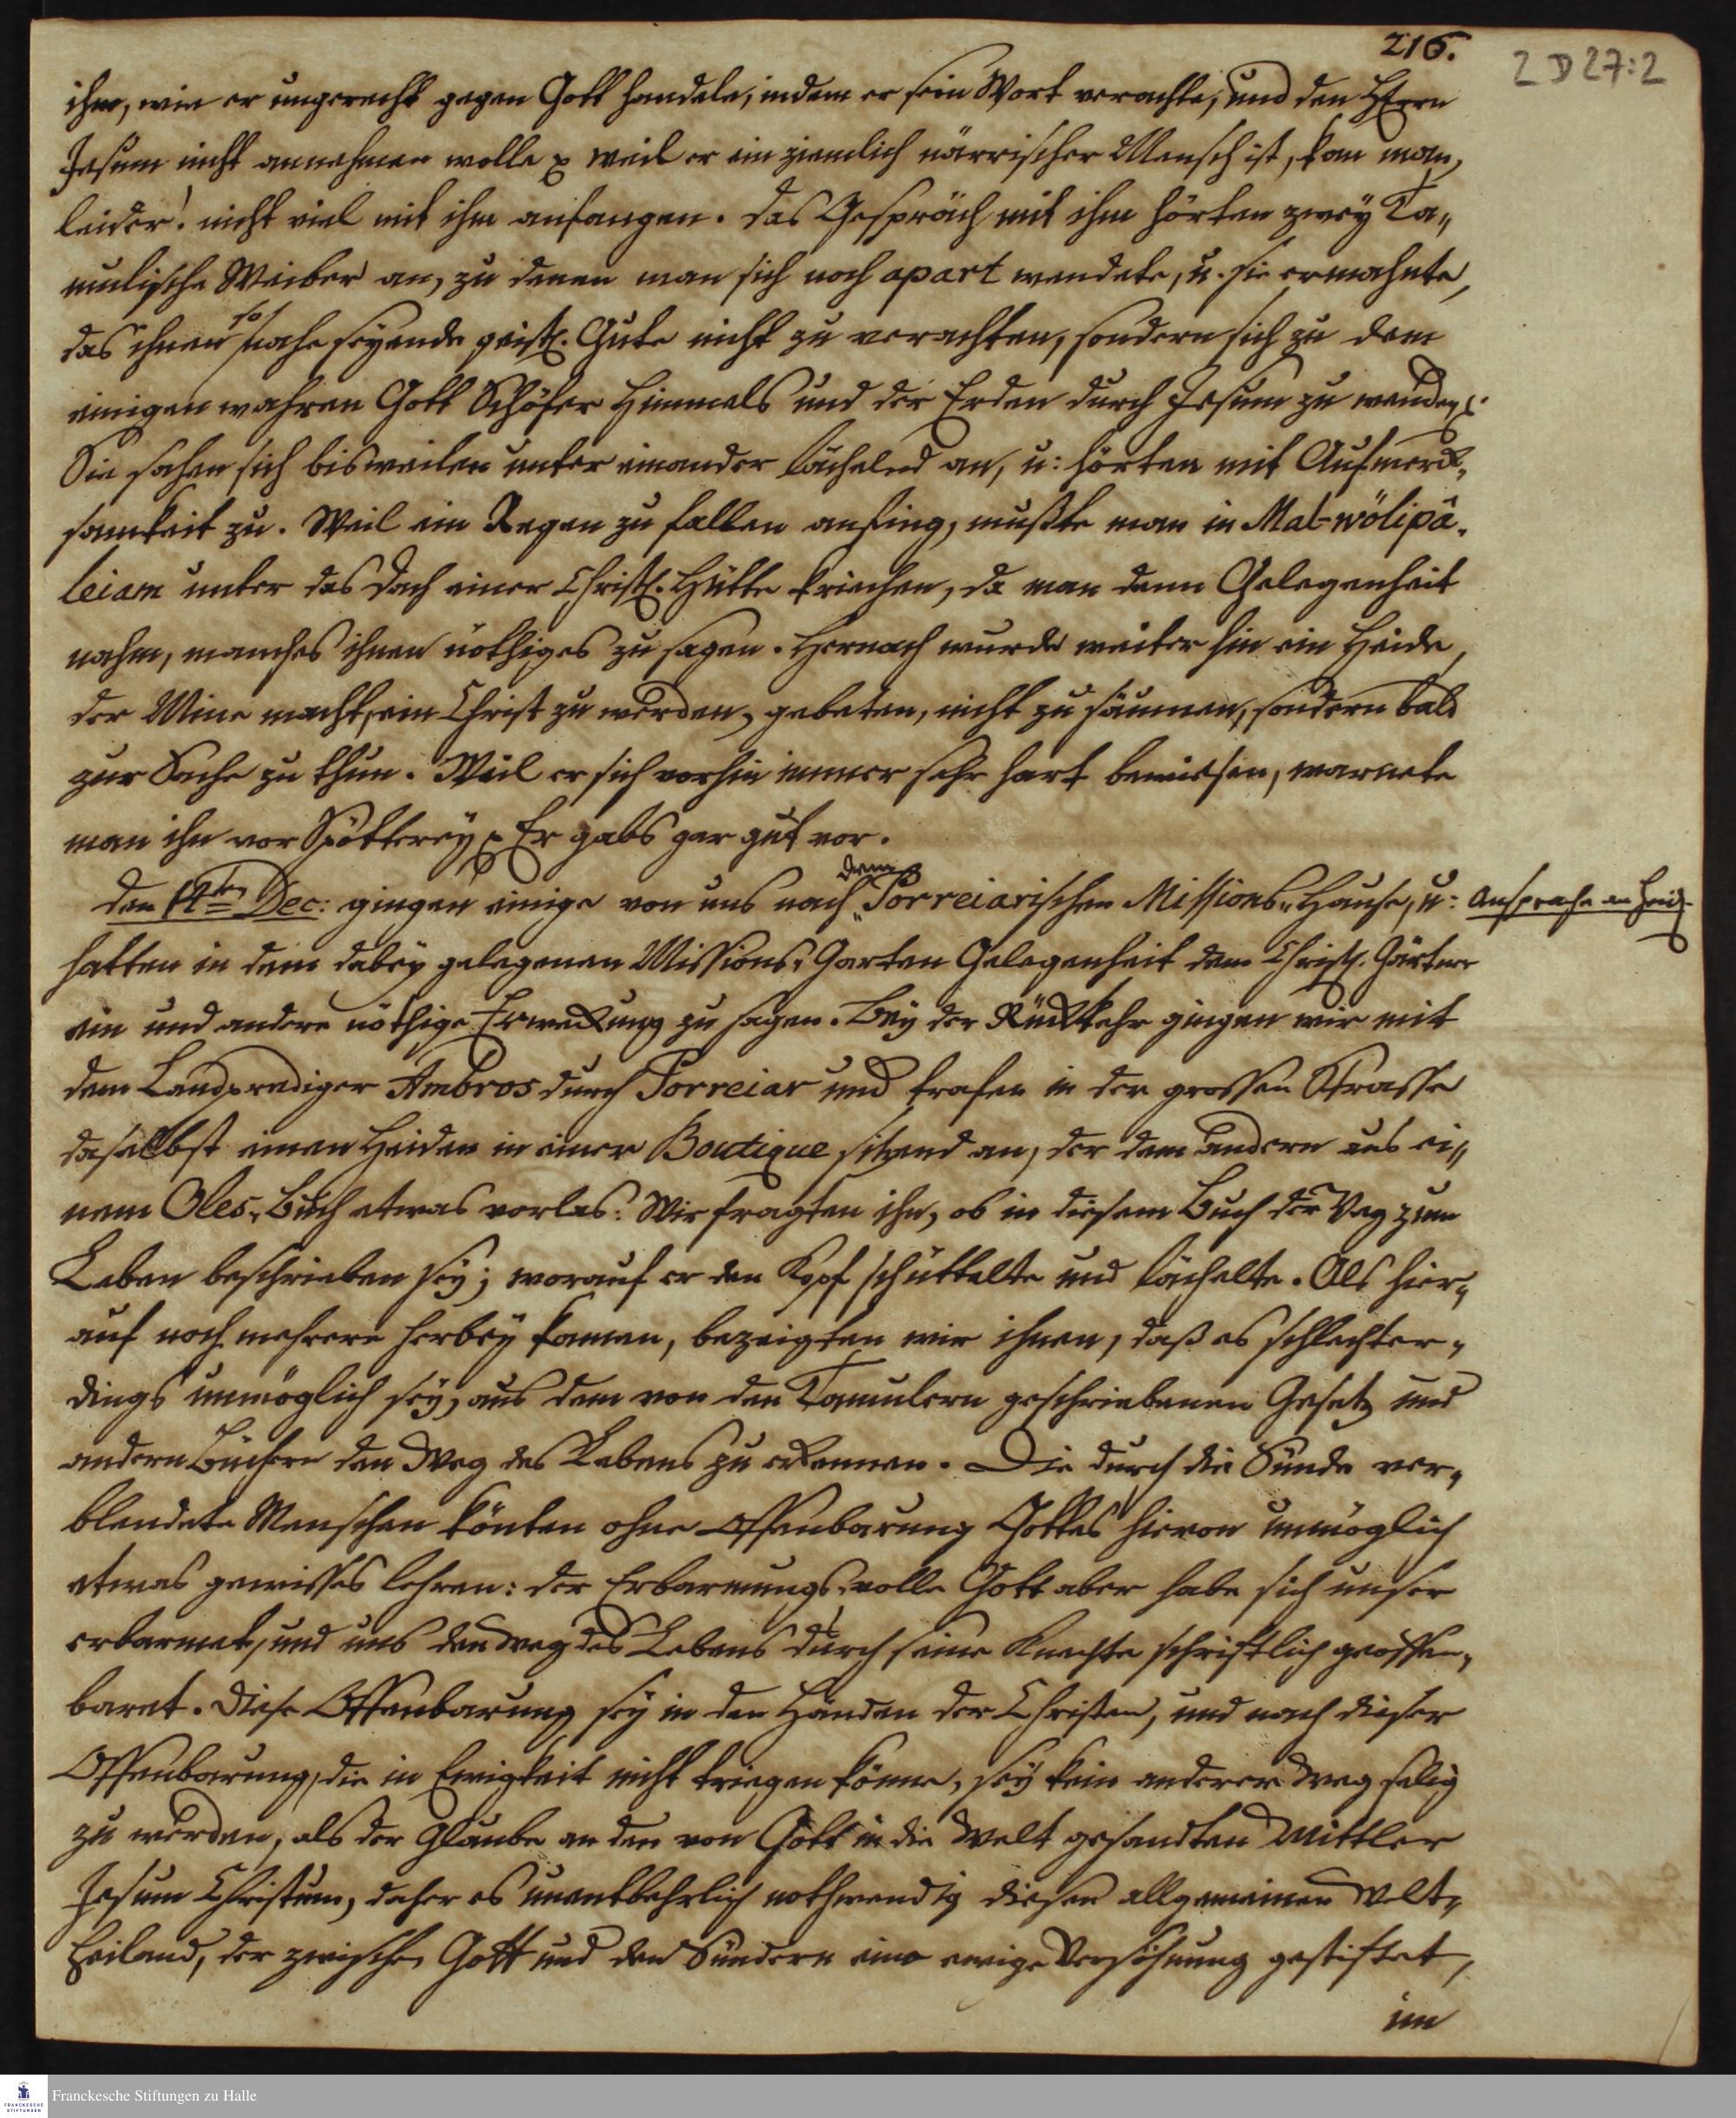 216.
2 D 27:2
ihm, wie er ungerecht gegen Gott handele, indem er sein Wort verachte, und den HErrn
Jesum nicht annehmen wolle p weil er ein ziemlich närrischer Mensch ist, kan man,
leider! nicht viel mit ihm anfangen. Das Gespräch mit ihm hörten zwey Ta„
mulische Weiber an, zu denen man sich noch apart wendete, u. sie ermahnte,
das ihnen so nahe seyende geistl. Gute nicht zu verachten, sondern sich zu dem
einigen wahren Gott Schöfer Himmels und der Erden durch Jesum zu wenden p.
Sie sahen sich bisweilen unter einander lächelnd an, u: hörten mit Aufmerck„
samkeit zu. Weil ein Regen zu fallen anfing, mußte man in Mal-wölipâ„
leiam unter das Dach einer Christl. Hütte kriechen, da man denn Gelegenheit
nahm, manches ihnen nöthiges zu sagen. Hernach wurde weiter hin ein Heide,
der Mine macht, ein Christ zu werden, gebeten, nicht zu säumen, sondern bald
zur Sache zu thun. Weil er sich vorhin immer sehr hart bewiesen, warnete
man ihn vor Spötterey p Er gabs gar gut vor.
den 14ten Dec: gingen einige von uns nach dem Porreiarischen Missions„Hause, u:
Ansprache an Heid.
hatten in dem dabey gelegenen Missions„Garten Gelegenheit dem Christl. Gärtner
ein und andere nöthige Erweckung zu sagen. Bey der Rückkehr gingen wir mit
dem Landprediger Ambros durch Porreiar und trafen in der grossen Strasse
daselbst einen Heiden in einer Boutique sitzend an, der dem andern aus ei„
nem Oles„Buch etwas vorlas: Wir fragten ihn, ob in diesem Buch der Weg zum
Leben beschrieben sey; worauf er den Kopf schüttelte und lächelte. Als hier„
auf noch mehrere herbey kamen, bezeigten wir ihnen, daß es schlechter„
dings unmöglich sey, aus dem von den Tamulern geschriebenen Gesetz und
andern Büchern den Weg des Lebens zu erkennen. Die durch die Sünde ver„
blendete Menschen könten ohne Offenbarung Gottes hievon unmöglich
etwas gewisses lehren: der Erbarmungs„volle Gott aber habe sich unser
erbarmet, und uns den Weg des Lebens durch seine Knechte schriftlich geoffen„
baret. Diese Offenbarung sey in den Händen der Christen, und nach dieser
Offenbarung, die in Ewigkeit nicht triegen könne, sey kein anderer Weg selig
zu werden, als der Glaube an den von Gott in die Welt gesandten Mittler
Jesum Christum, daher es unentbehrlich nothwendig diesen allgemeinen Welt„
Heiland, der zwischen Gott und den Sündern eine ewige Versöhnung gestiftet,
im
Franckesche Stiftungen zu Halle
FRANCKESCHE
STIFTUNGEN